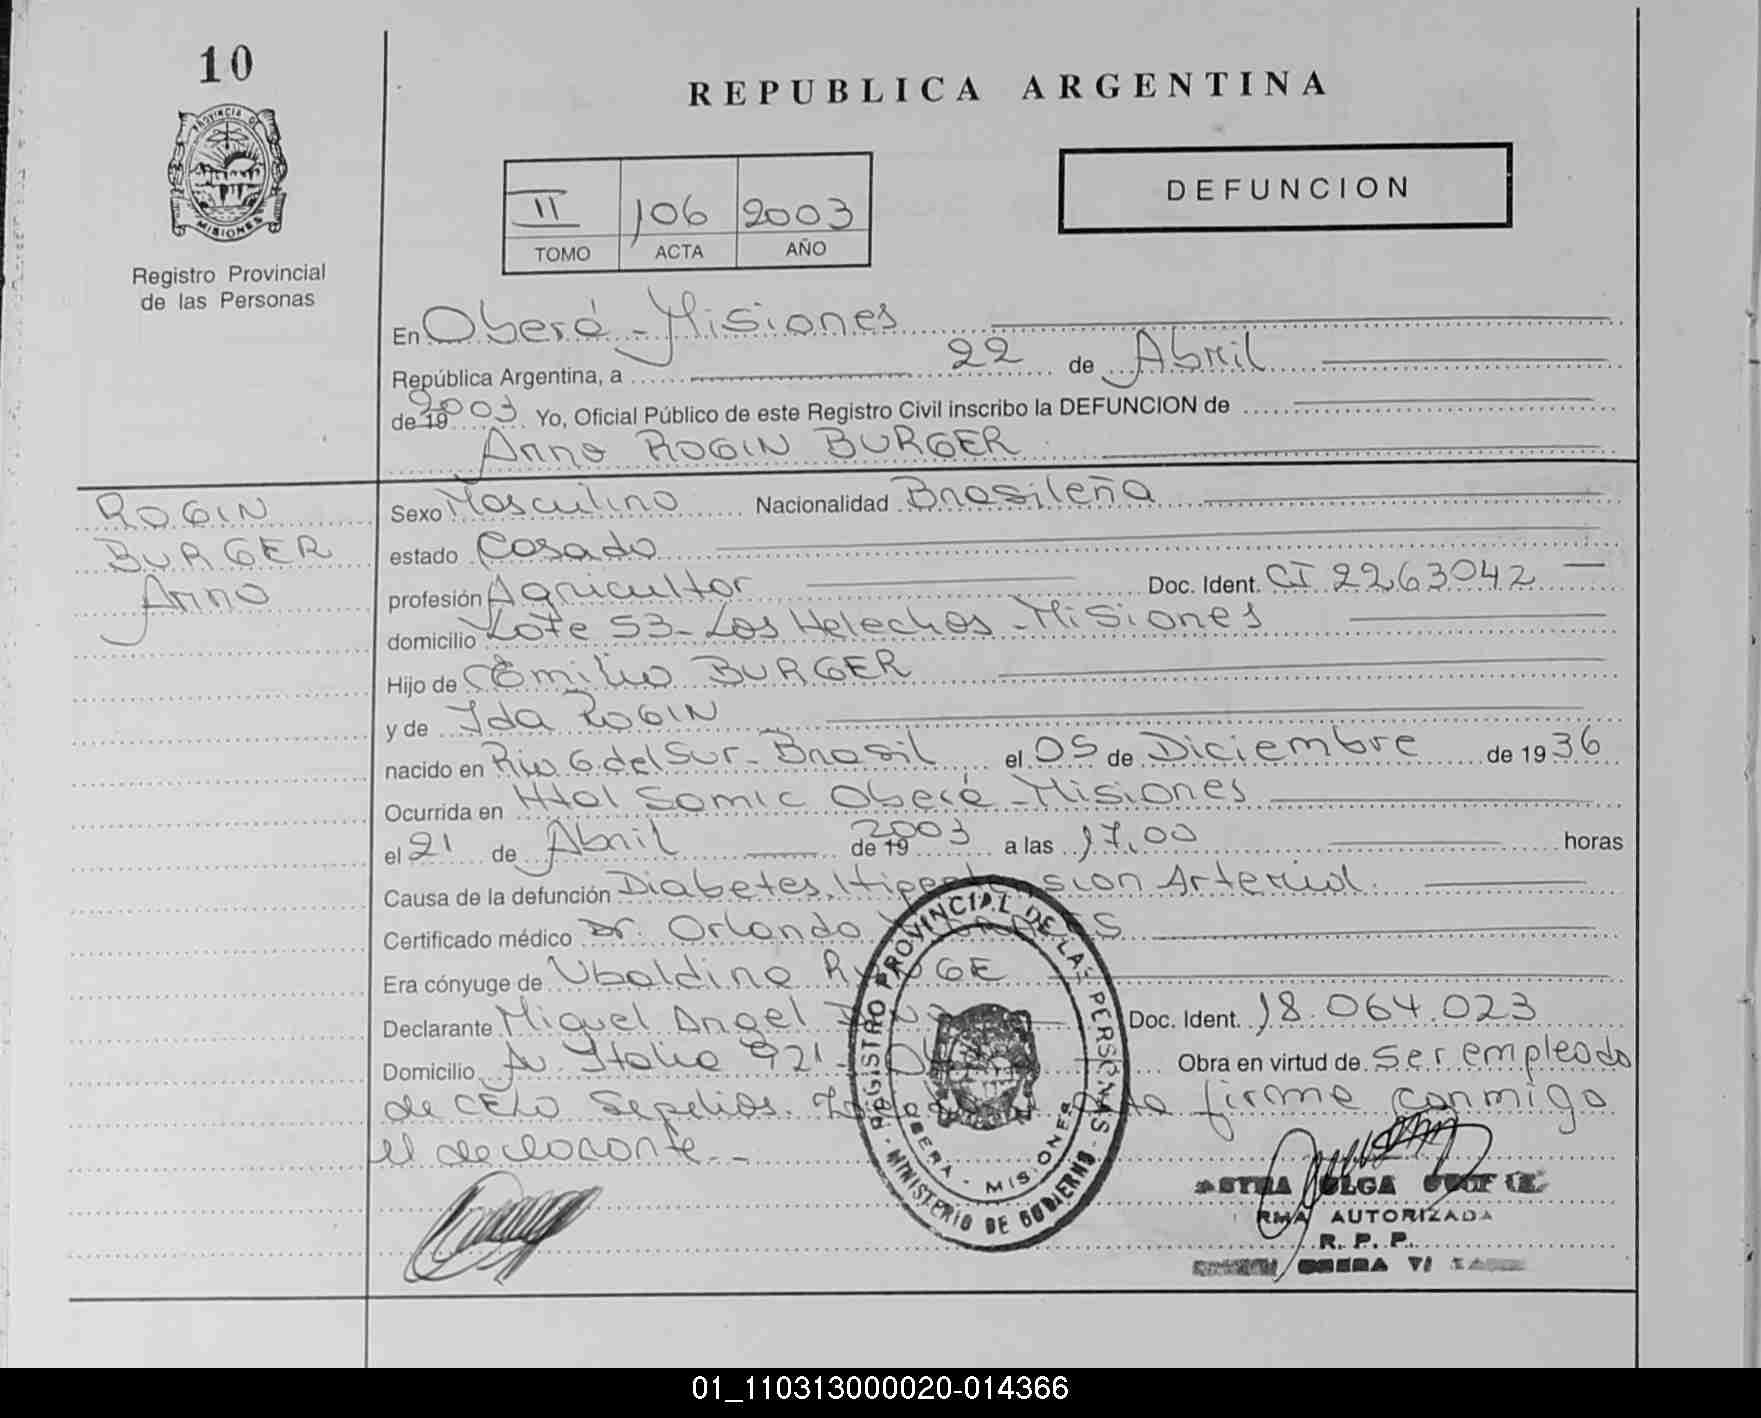 10
PROVINCIA DE
MISIONES
Registro Provincial
de las Personas
REPUBLICA ARGENTINA
II 106 2003
TOMO ACTA AÑO
DEFUNCION
En Oberá - Misiones
República Argentina, a 22 de Abril
de 19 2003 Yo, Oficial Público de este Registro Civil inscribo la DEFUNCION de
Arno ROGIN BURGER
ROGIN
BURGER
Arno
Sexo Masculino Nacionalidad Brasileña
estado Casado
profesión Agricultor Doc. Ident. CI 2263042
domicilio Lote 53 - Los Helechos - Misiones
Hijo de Emilio BURGER
y de Ida ROGIN
nacido en Rio G. del Sur - Brasil el 05 de Diciembre de 19 36
Ocurrida en Htal Samic Oberá - Misiones
el 21 de Abril de 19 2003 a las 17,00 horas
Causa de la defunción Diabetes, Hipertension Arterial
Certificado médico Dr. Orlando
Era cónyuge de Ubaldina
Declarante Miguel Angel Doc. Ident. 18.064.023
Domicilio Av. Italia 921 - Obra en virtud de ser empleado
de CELO Sepelios. firma conmigo
el declarante. -
REGISTRO PROVINCIAL DE LAS PERSONAS
OBERA - MISIONES
- MINISTERIO DE GOBIERNO -
OLGA
AUTORIZADA
R. P. P.
OBERA
01_110313000020-014366